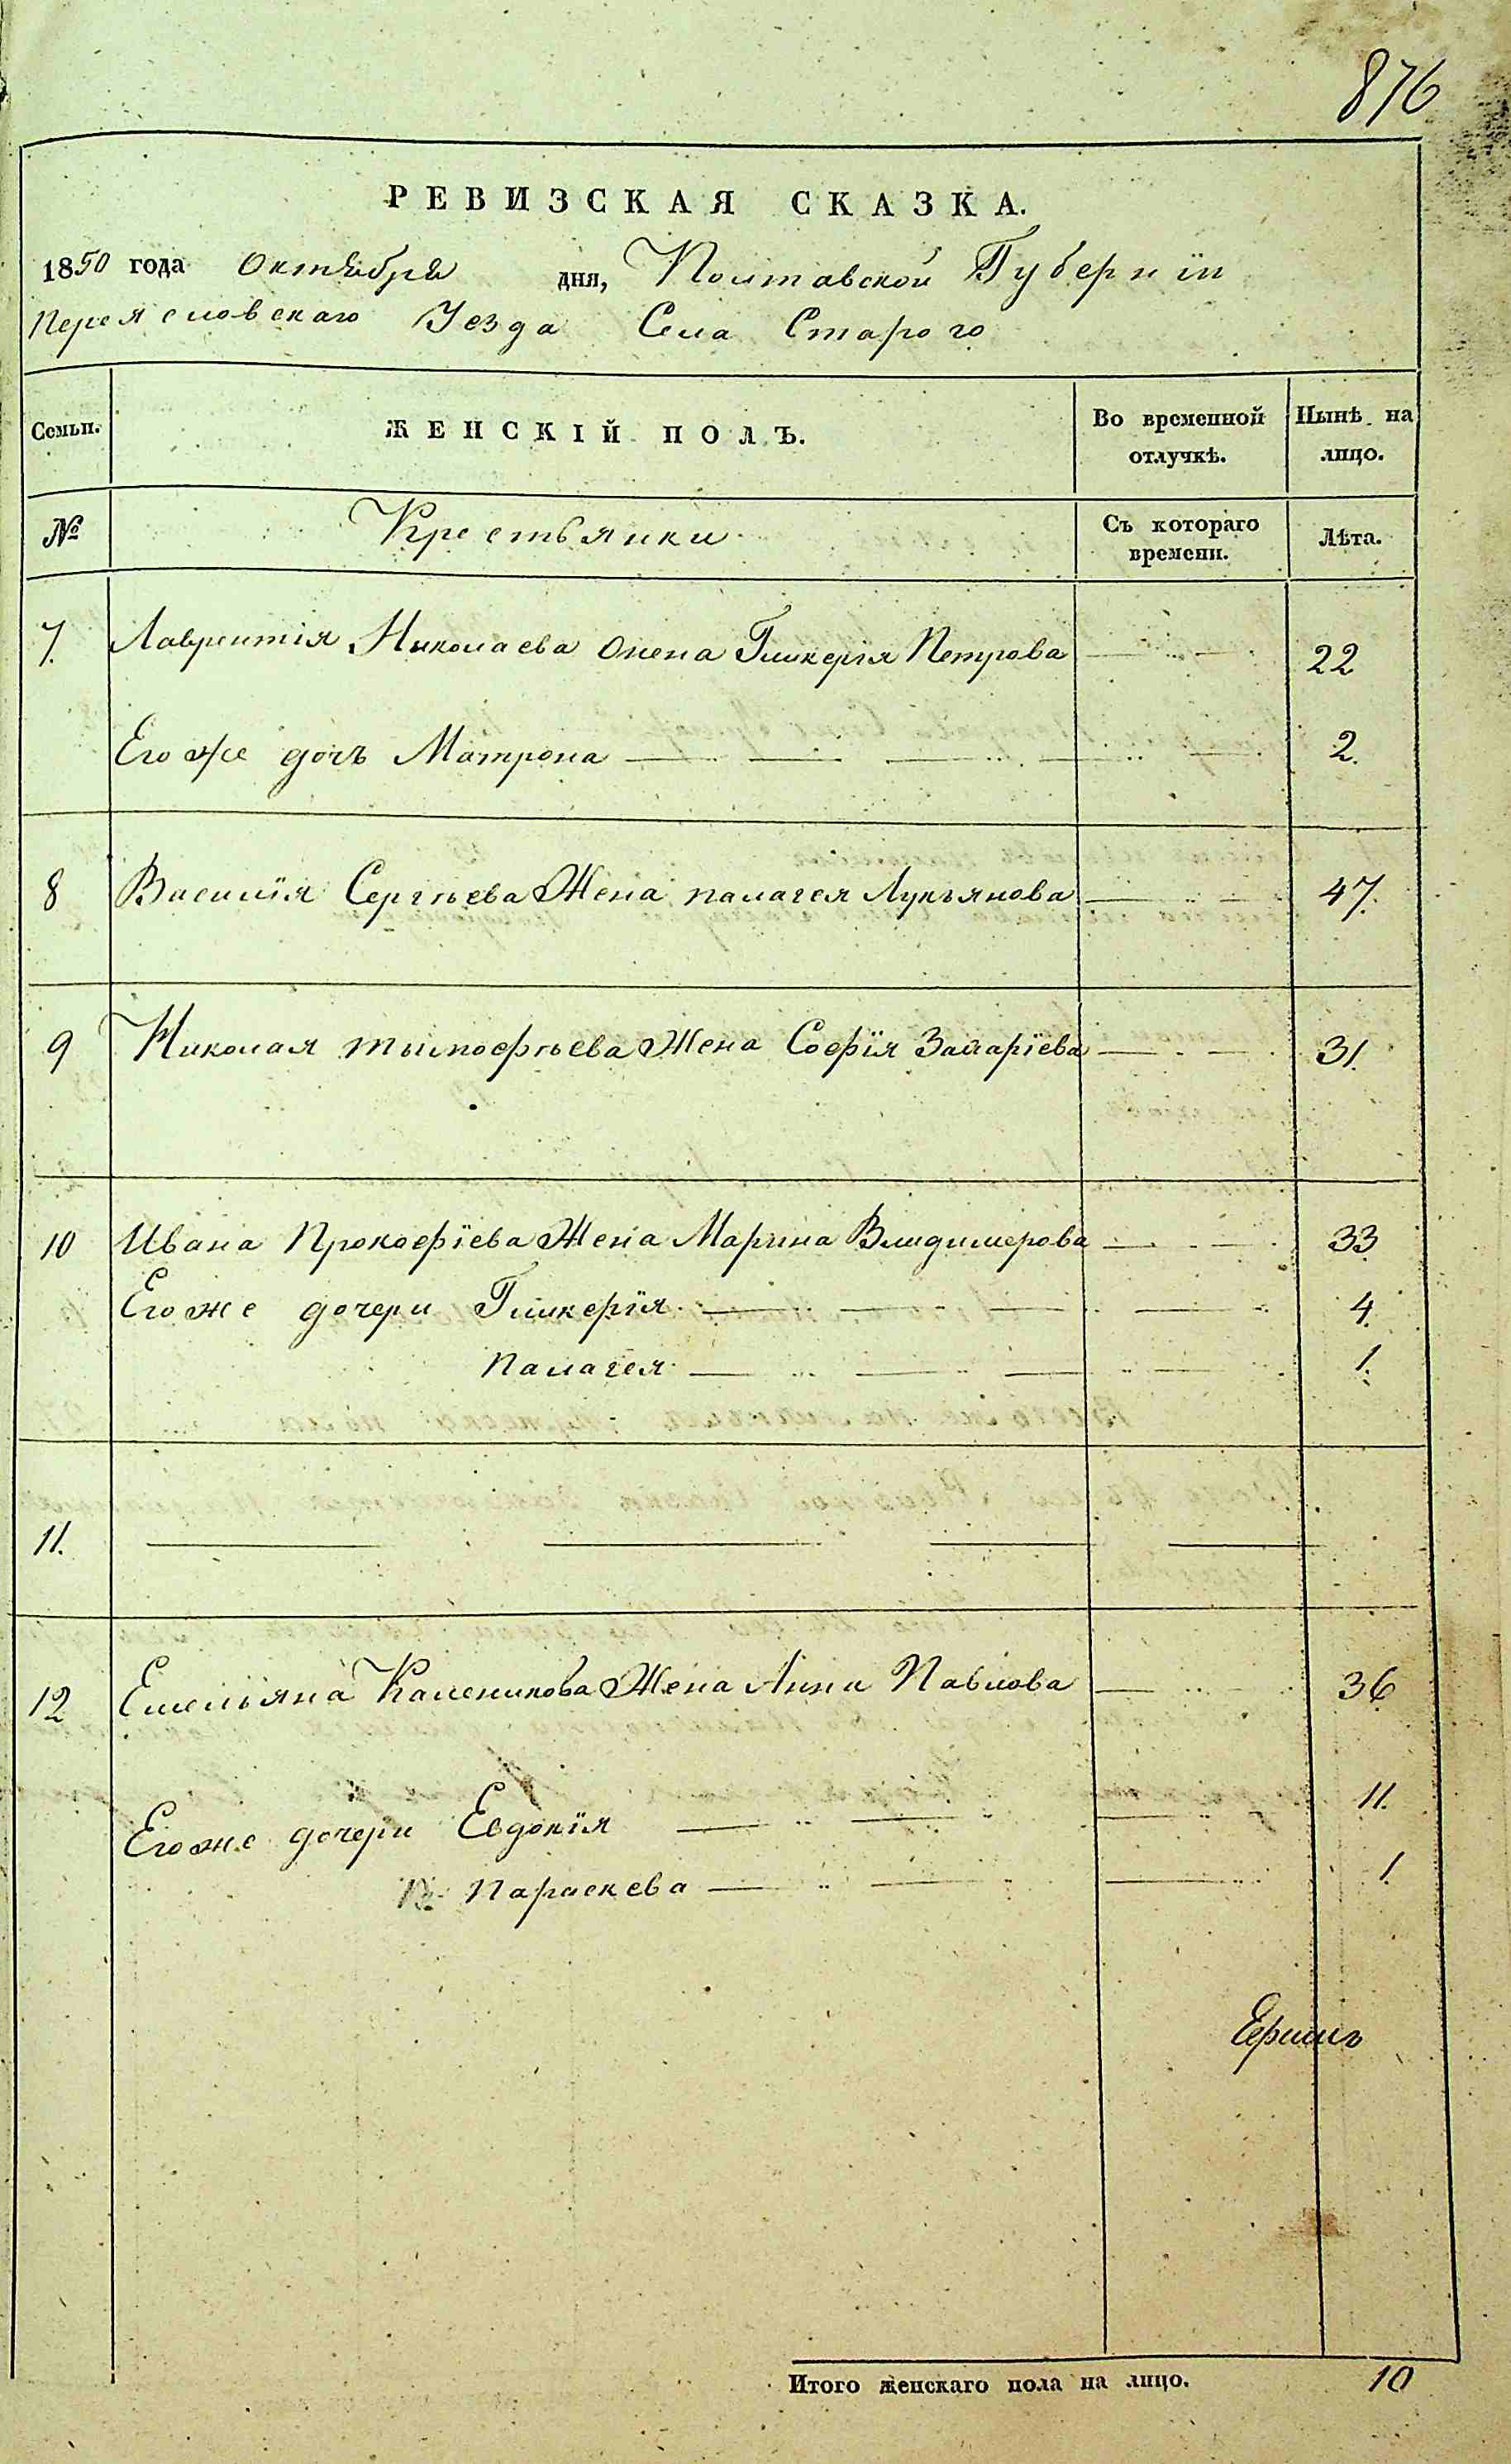 876
РЕВИЗСКАЯ СКАЗКА.
1850 года Октября дня, Полтавской Губернїи
Переяславскаго Уезда Села Старого
Семьи. ЖЕНСКІЙ ПОЛЪ. Во временной отлучкѣ. Нынѣ на лицо.
№ Крестьянки Съ котораго времени. Лѣта.
7. Лаврентїя Николаева жена Гликерїя Петрова 22
Его же дочъ Матрона 2.
8 Василїя Сергѣева Жена палагея Лукъянова 47.
9 Николая тымофѣева Жена Софїя Захарїева 31.
10 Ивана Прокофїева Жена Марина Владимерова 33
Его же дочери Гликерїя 4.
палагея 1.
11.
12 Емельяна Каленикова Жена Анна Павлова 36
Его же дочери Евдокїя 11.
Параскева 1.
Итого женскаго пола на лицо. 10